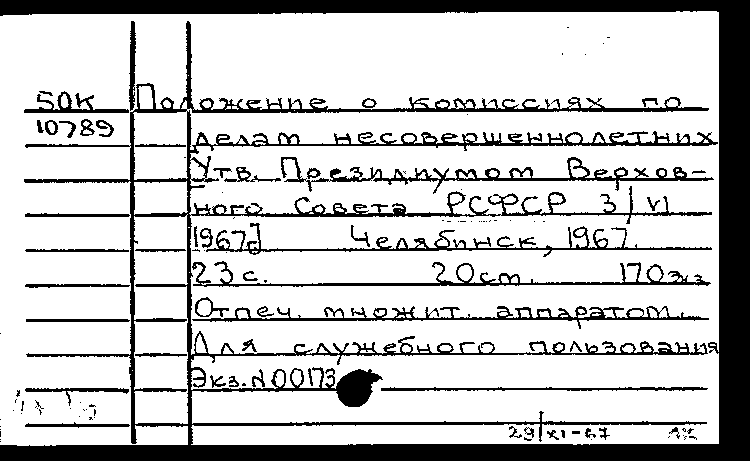 50К Положение о комиссиях по
10789 делам несовершеннолетних
Утв. Президиумом Верхов-
ного Совета РСФСР 3/VI
1967г] Челябинск, 1967.
23 с. 20 см. 170 экз
Отпеч. множит. аппаратом.
Для служебного пользования
Экз. N 00173
29/XI-67